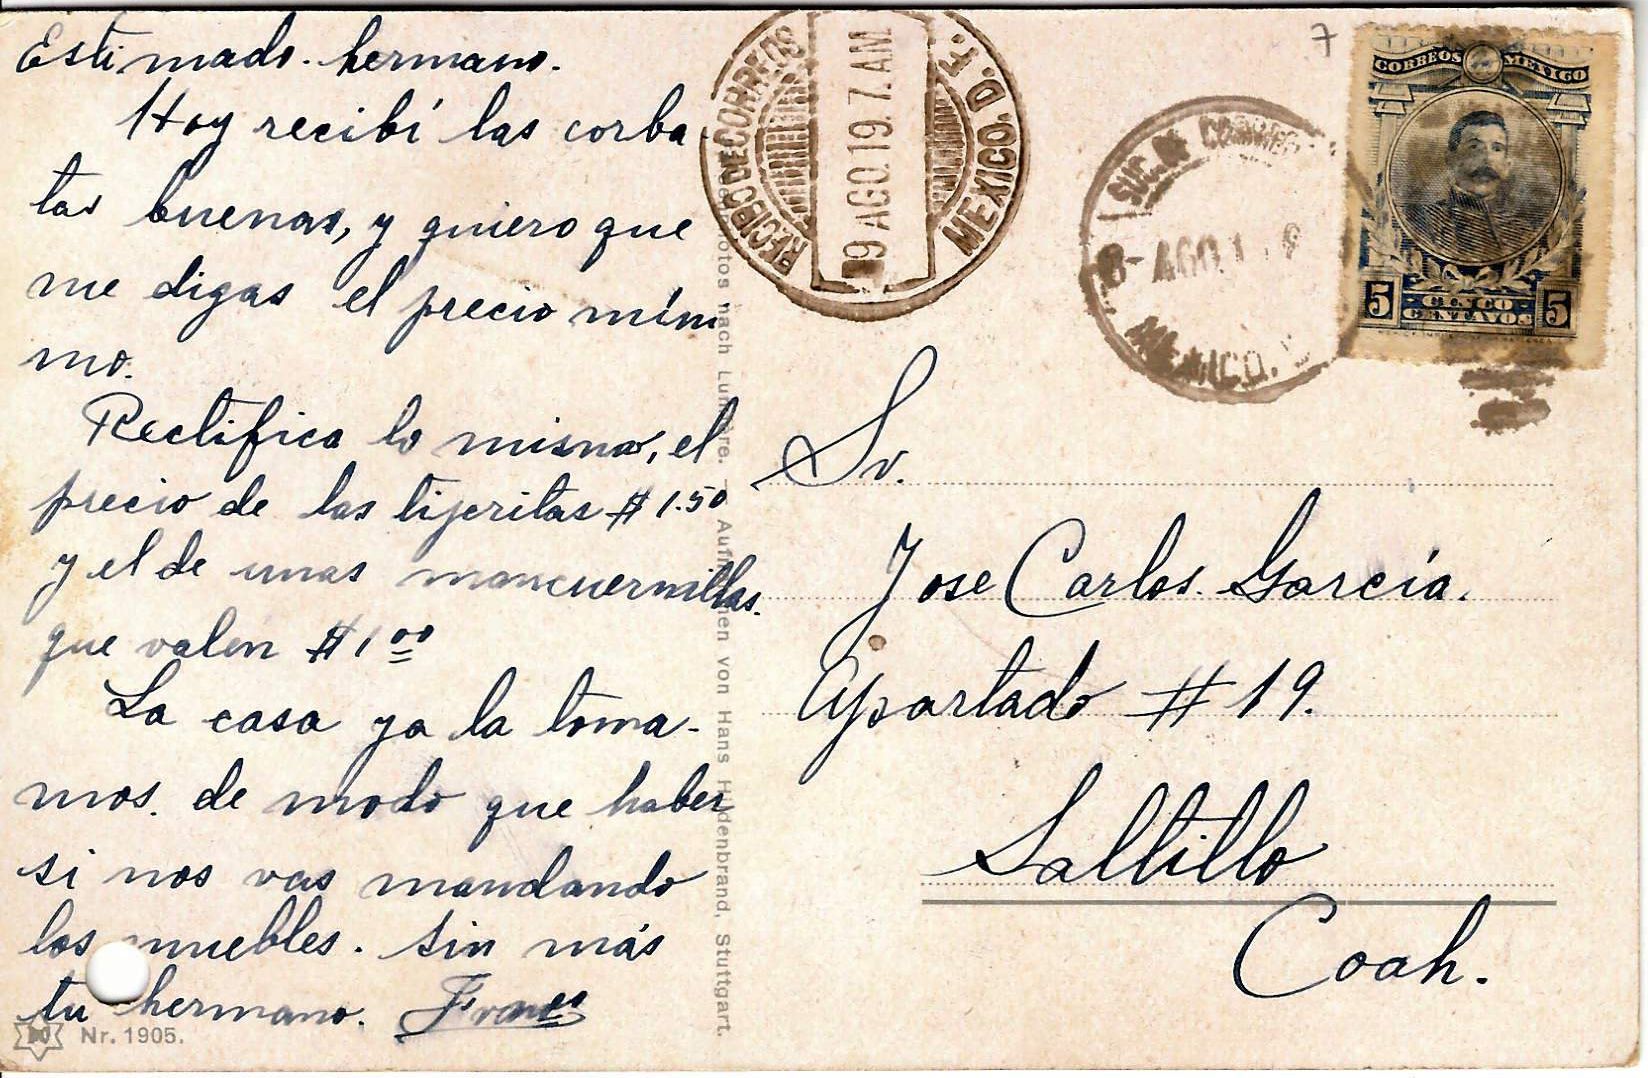 Estimado. hermano.
Hoy recibí las corba-
tas buenas, y quiero que
me digas el precio míni
mo.
Rectifica lo mismo, el
precio de las tijeritas $ 1.50
y el de unas mancuernillas.
que valen $ 1 00
La casa ya la toma-
mos. de modo que haber
si nos vas mandando
los muebles. Sin más
tu hermano. Franco
Nr. 1905.
nach Lumière. Aufnahmen von Hans Hildenbrand, Stuttgart.
RECIBO DE CORREOS
9 AGO.19.7.AM
MEXICO. D.F.
SUC. DE CORREOS
8- AGO. 1
MEXICO.
7
CORREOS MEXICO
5 CINCO CENTAVOS 5
Sr.
Jose Carlos. García.
Apartado # 19.
Saltillo
Coah.